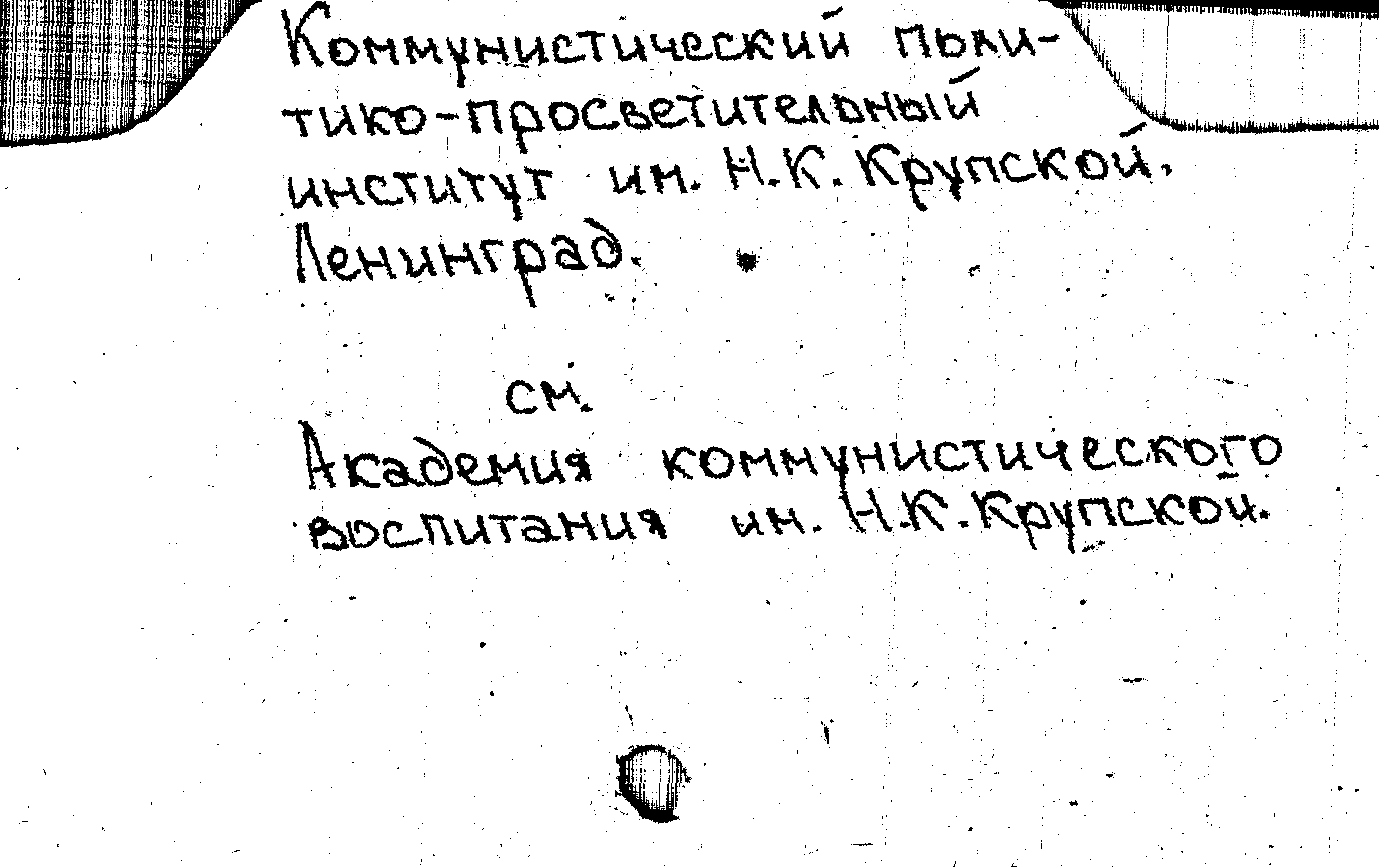 Коммунистический поли-
тико-просветительный
институт им. Н.К. Крупской.
Ленинград.
см.
Академия коммунистического
воспитания им. Н.К. Крупской.